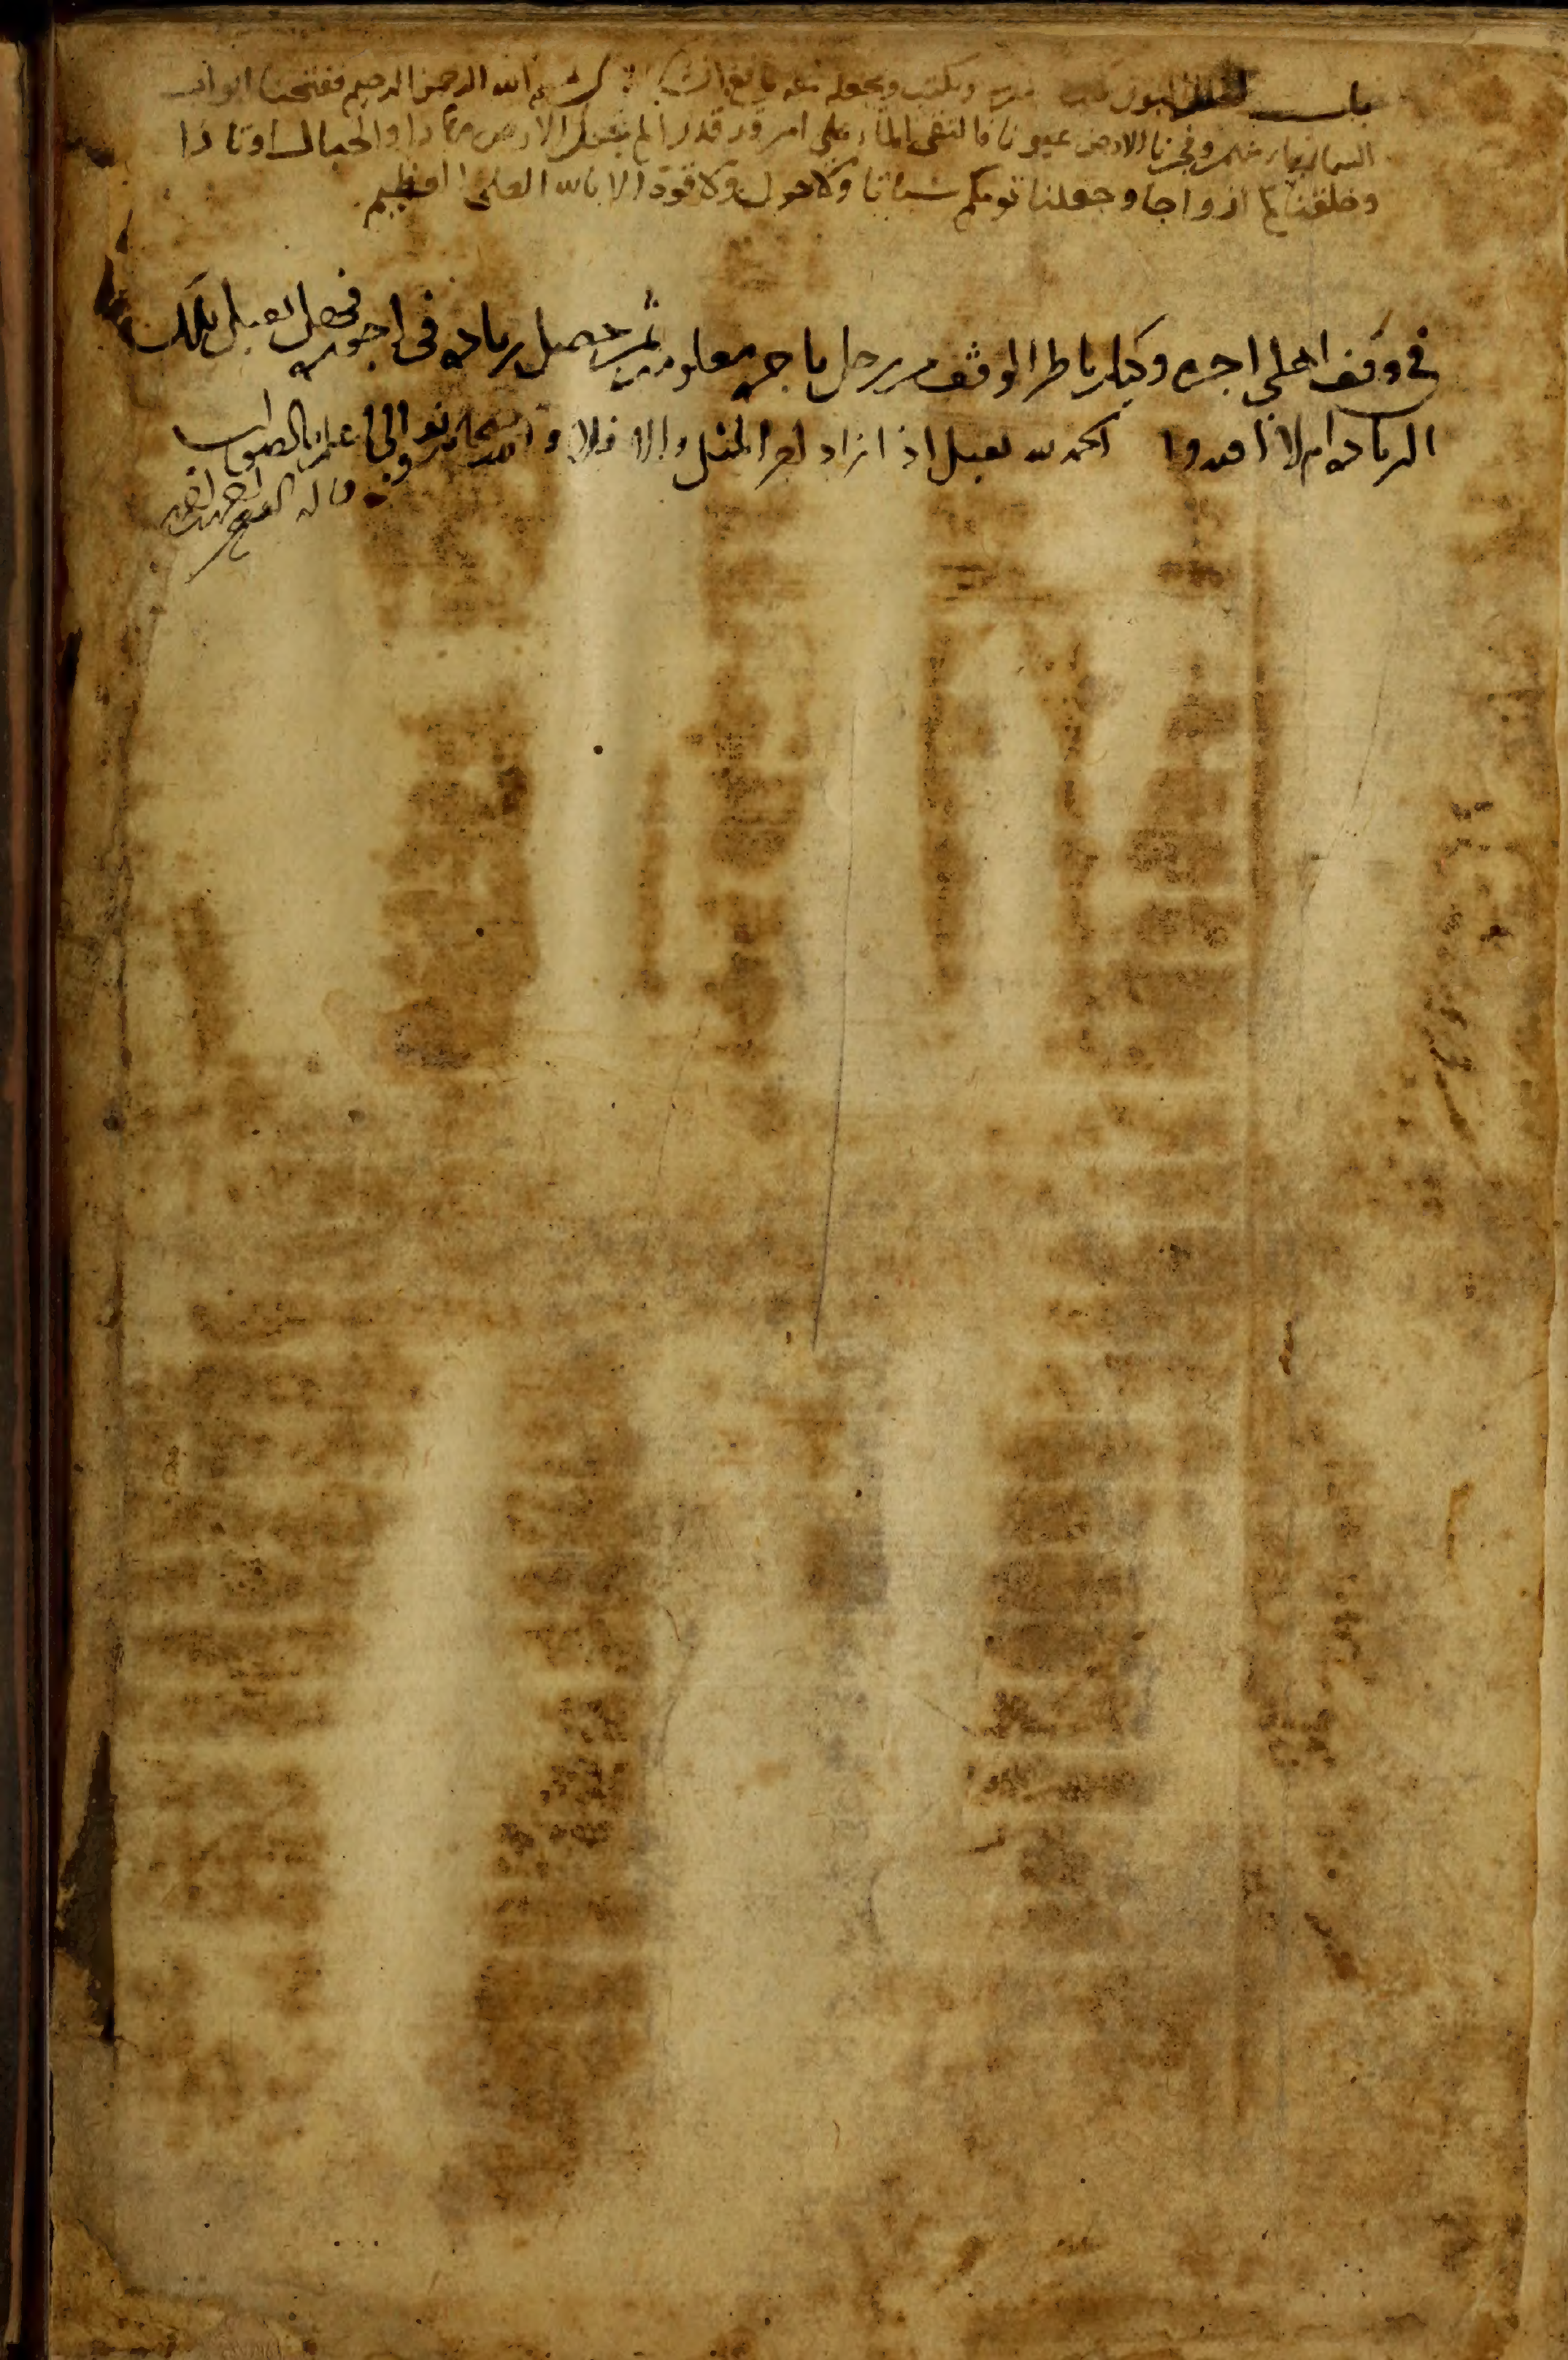 باب البول يكتب ويجعله بسم الله الرحمن الرحيم ففتحنا ابواب
السما بماء منهمر وفجرنا الارض عيونا فالتقى الماء على امر قد قدر الم نجعل الارض مهادا والجبال اوتادا
وخلقناكم ازواجا وجعلنا نومكم سباتا ولا حول ولا قوة الا بالله العلى العظيم
في وقف اهلى اجره وكيل ناظر الوقف من رجل باجره معلومه ثم حصل زياده فى اجرته فهل تقبل تلك
الزياده ام لا افتونا الحمد لله تقبل اذا زاد اجر المثل والا فلا والله سبحانه وتعالى اعلم بالصواب
قاله الفقير